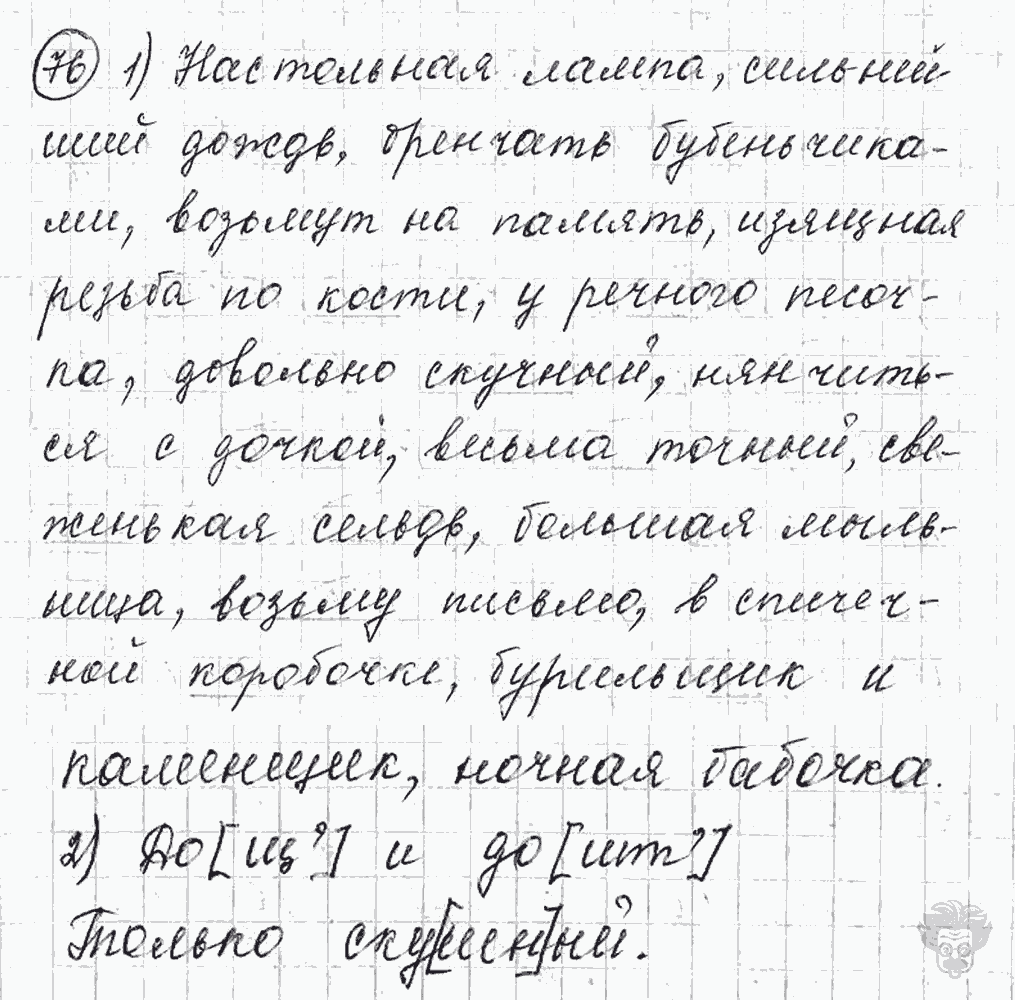 76 1) Настольная лампа, сильней
ший дождь, бренчать бубенчика-
ми, возьмут на память, изящная
резьба по кости, у речного песоч-
ка, довольно скучный, нянчить-
ся с дочкой, весьма точный, све-
женькая сельдь, большая мыль-
ница, возьму письмо, в спичеч-
ной коробочке, бурильщик и
каменщик, ночная бабочка.
2) До[щ’] и до[шт’]
Только ску[шн]ный.